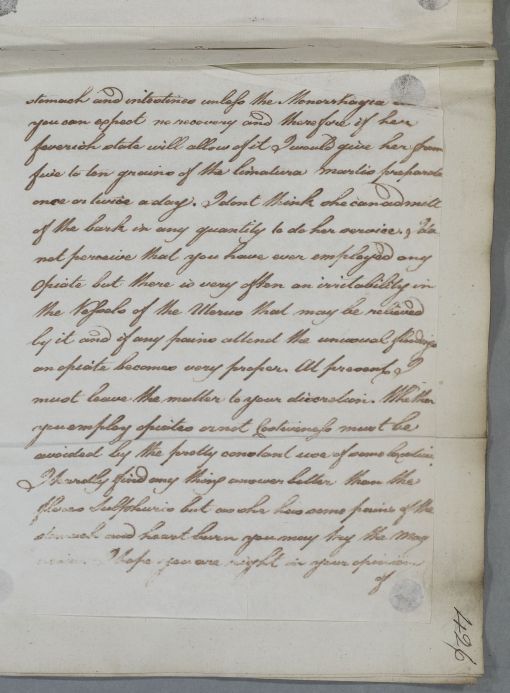 stomach and intestines unless the Menorrhagia
you can expect no recovery and therefore if her
feverish state will allow of it I would give her from
five to ten grains of the limatura martis preparata
once or twice a day. I dont think she can admitt
of the bark in any quantity to do her service. I do
not perceive that you have ever employed any
Opiate but there is very often an irritability in
the Vessels of the Uterus that may be relieved
by it and if any pains attend the unusual floodings
an opiate becomes very proper. At present I
must leave the matter to your discretion. Whether
you employ opiates or not Costiveness must be
avoided by the pretty constant use of some laxative.
I hardly find any thing answer better than the
flores Sulphuris but as she has some pains of the
stomach and heart burn you may try the Mag
I hope you are right in your opinion
of
426